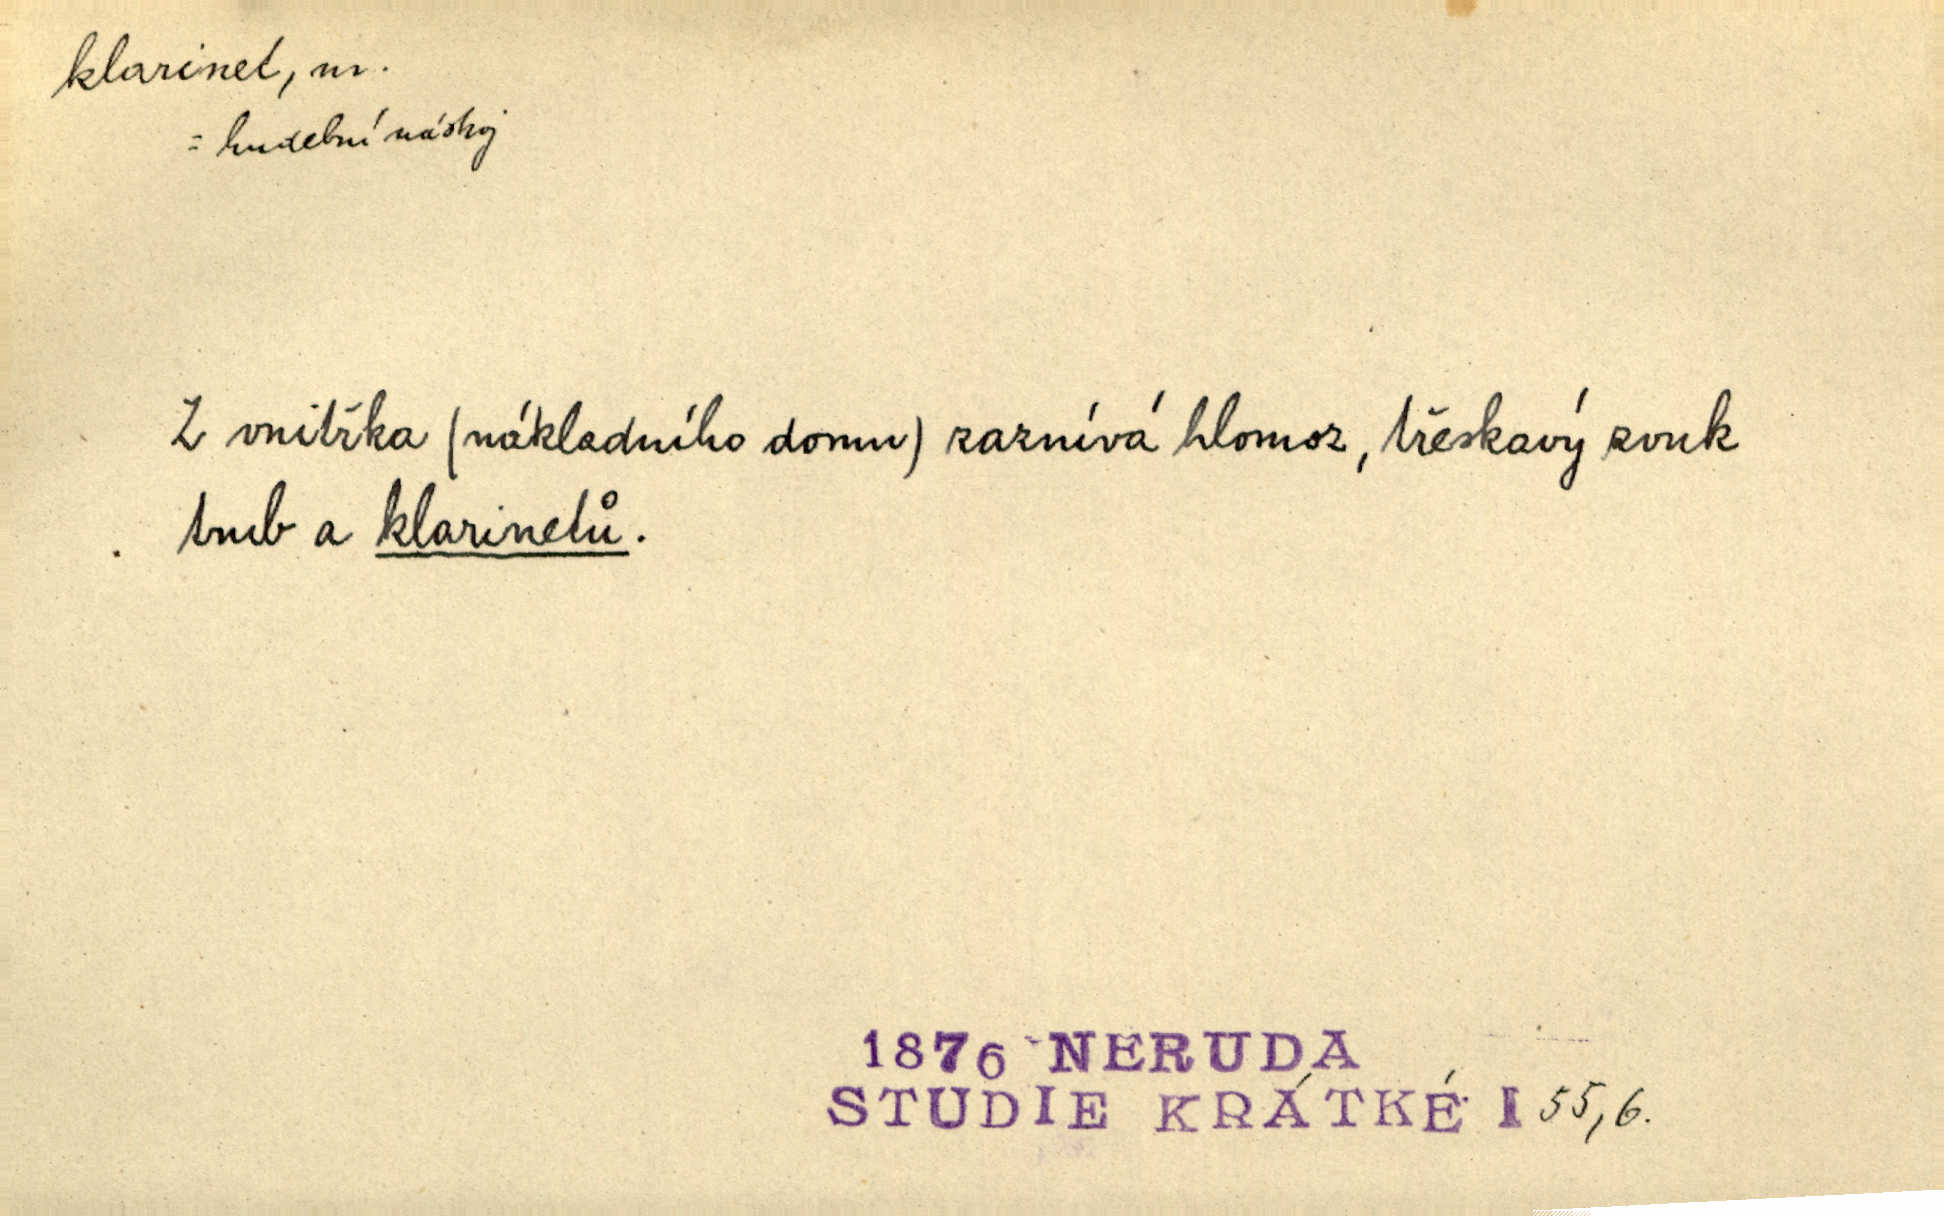 klarinet, m.
= hudební nástroj
Z vnitřka (nákladního domu) zaznívá hlomoz, třeskavý zvuk
trub a klarinetů.
1876 NERUDA
STUDIE KRÁTKÉ I 55,6.